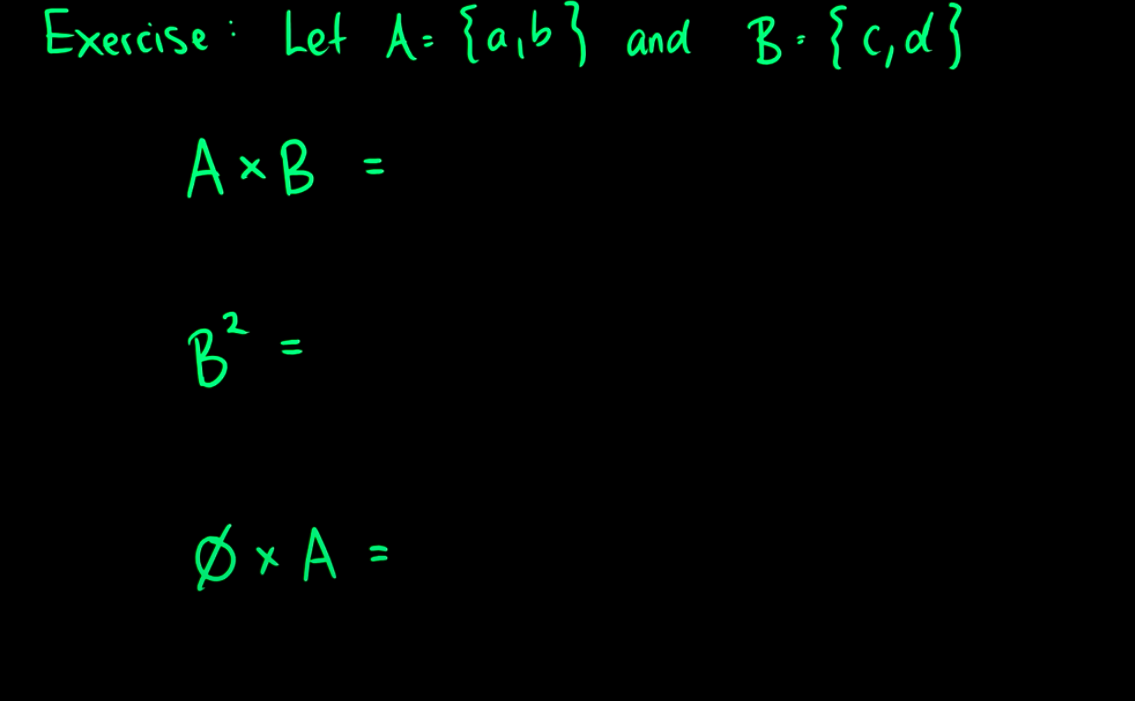 Exercise: Let A = {a,b} and B = {c,d}
A × B =
B² =
∅ × A =